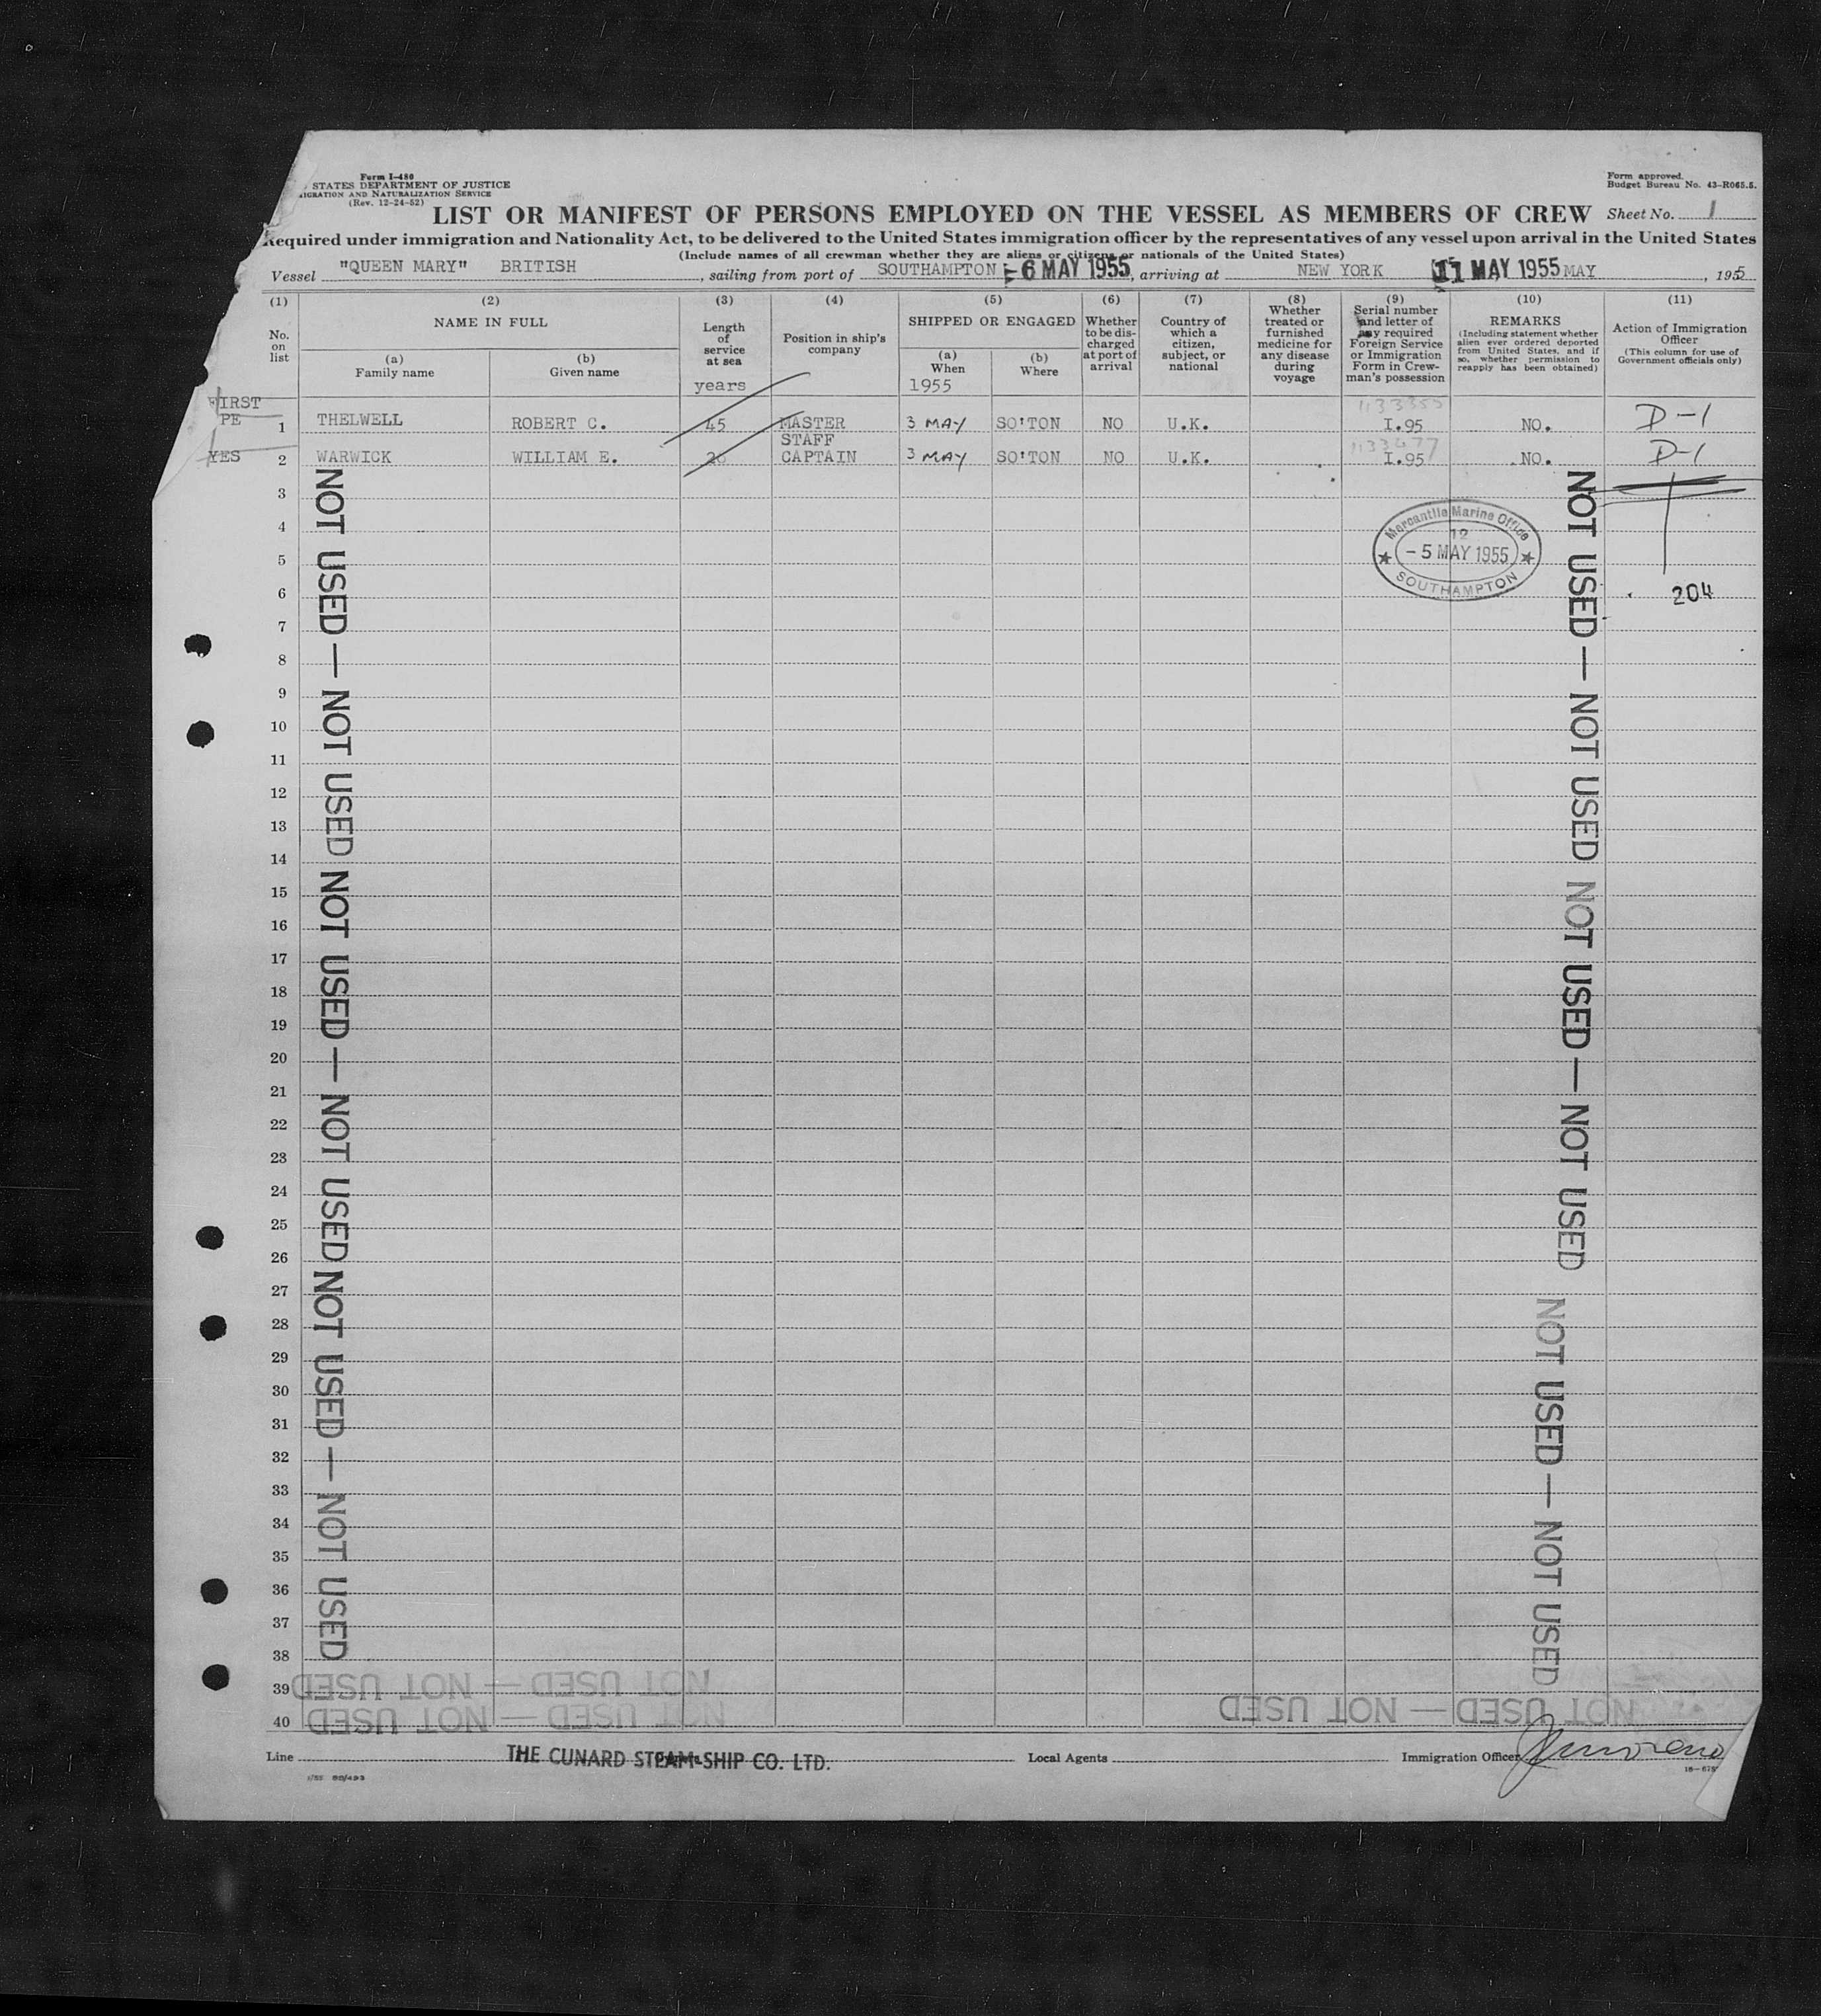 Form I-480
STATES DEPARTMENT OF JUSTICE
IGRATION AND NATURALIZATION SERVICE
(Rev. 12-24-52)
Form approved.
Budget Bureau No. 43-R065.5.
LIST OR MANIFEST OF PERSONS EMPLOYED ON THE VESSEL AS MEMBERS OF CREW
Sheet No. 1
Required under immigration and Nationality Act, to be delivered to the United States immigration officer by the representatives of any vessel upon arrival in the United States
(Include names of all crewman whether they are aliens or citizens or nationals of the United States)
Vessel "QUEEN MARY" BRITISH, sailing from port of SOUTHAMPTON - 6 MAY 1955, arriving at NEW YORK 11 MAY 1955 MAY, 1955
(1) (2) (3) (4) (5) (6) (7) (8) (9) (10) (11)
No. on list
NAME IN FULL
(a) Family name
(b) Given name
Length of service at sea
years
Position in ship's company
SHIPPED OR ENGAGED
(a) When
1955
(b) Where
Whether to be discharged at port of arrival
Country of which a citizen, subject, or national
Whether treated or furnished medicine for any disease during voyage
Serial number and letter of any required Foreign Service or Immigration Form in Crewman's possession
REMARKS
(Including statement whether alien ever ordered deported from United States, and if so, whether permission to reapply has been obtained)
Action of Immigration Officer
(This column for use of Government officials only)
FIRST
PE 1 THELWELL ROBERT C. 45 MASTER 3 MAY SO'TON NO U.K. I.95 NO. D-1
STAFF
YES 2 WARWICK WILLIAM E. CAPTAIN 3 MAY SO'TON NO U.K. I.95 NO. D-1
3
4
5
6
7
8
9
10
11
12
13
14
15
16
17
18
19
20
21
22
23
24
25
26
27
28
29
30
31
32
33
34
35
36
37
38
39
40
Mercantile Marine Office
12
- 5 MAY 1955
SOUTHAMPTON
204
NOT USED — NOT USED
NOT USED — NOT USED
NOT USED — NOT USED
NOT USED — NOT USED
NOT USED — NOT USED
NOT USED — NOT USED
NOT USED — NOT USED
NOT USED — NOT USED
NOT USED — NOT USED
Line THE CUNARD STEAM-SHIP CO. LTD. Local Agents Immigration Officer